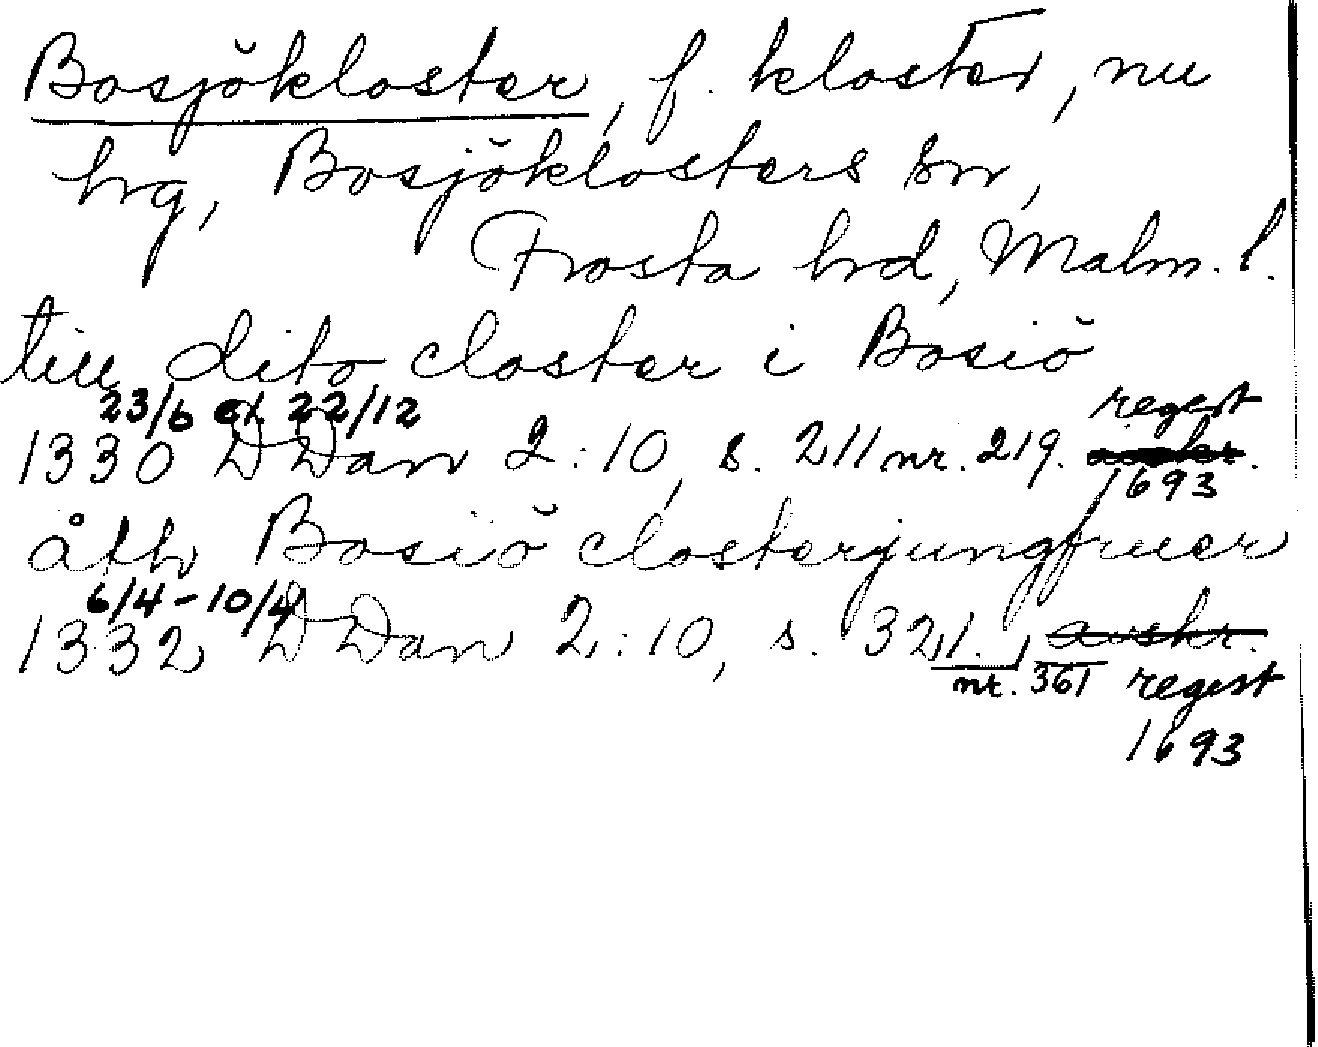 Bosjökloster, f. kloster, nu
hrg, Bosjöklosters sn,
Frosta hrd, Malm. l.
till dito closter i Bosiö
23/6 el. 22/12 regest
1330 DDan 2:10, s. 211 nr. 219. avskr.
1693
åth Bosiö closterjungfruer
6/4-10/4
1332 DDan 2:10, s. 321., avskr.
nr. 361 regest
1693